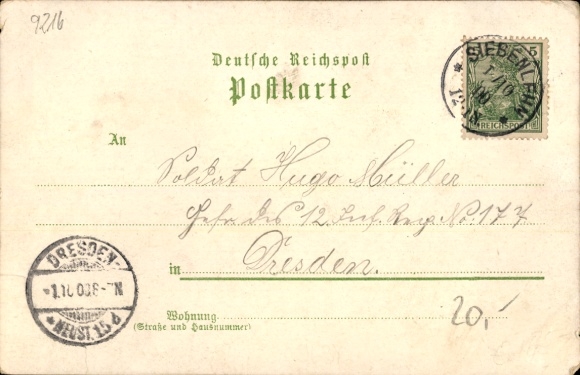 9216
Deutsche Reichspost
Postkarte
SIEBENLEHN
1/10
00
12-1N
5
REICHSPOST
An
Soldat Hugo Müller
des 12. Inf. Reg. No: 177
in Dresden.
DRESDEN-
*1.10.00.8-N
*NEUST. 15 d
Wohnung
(Straße und Hausnummer)
20,-